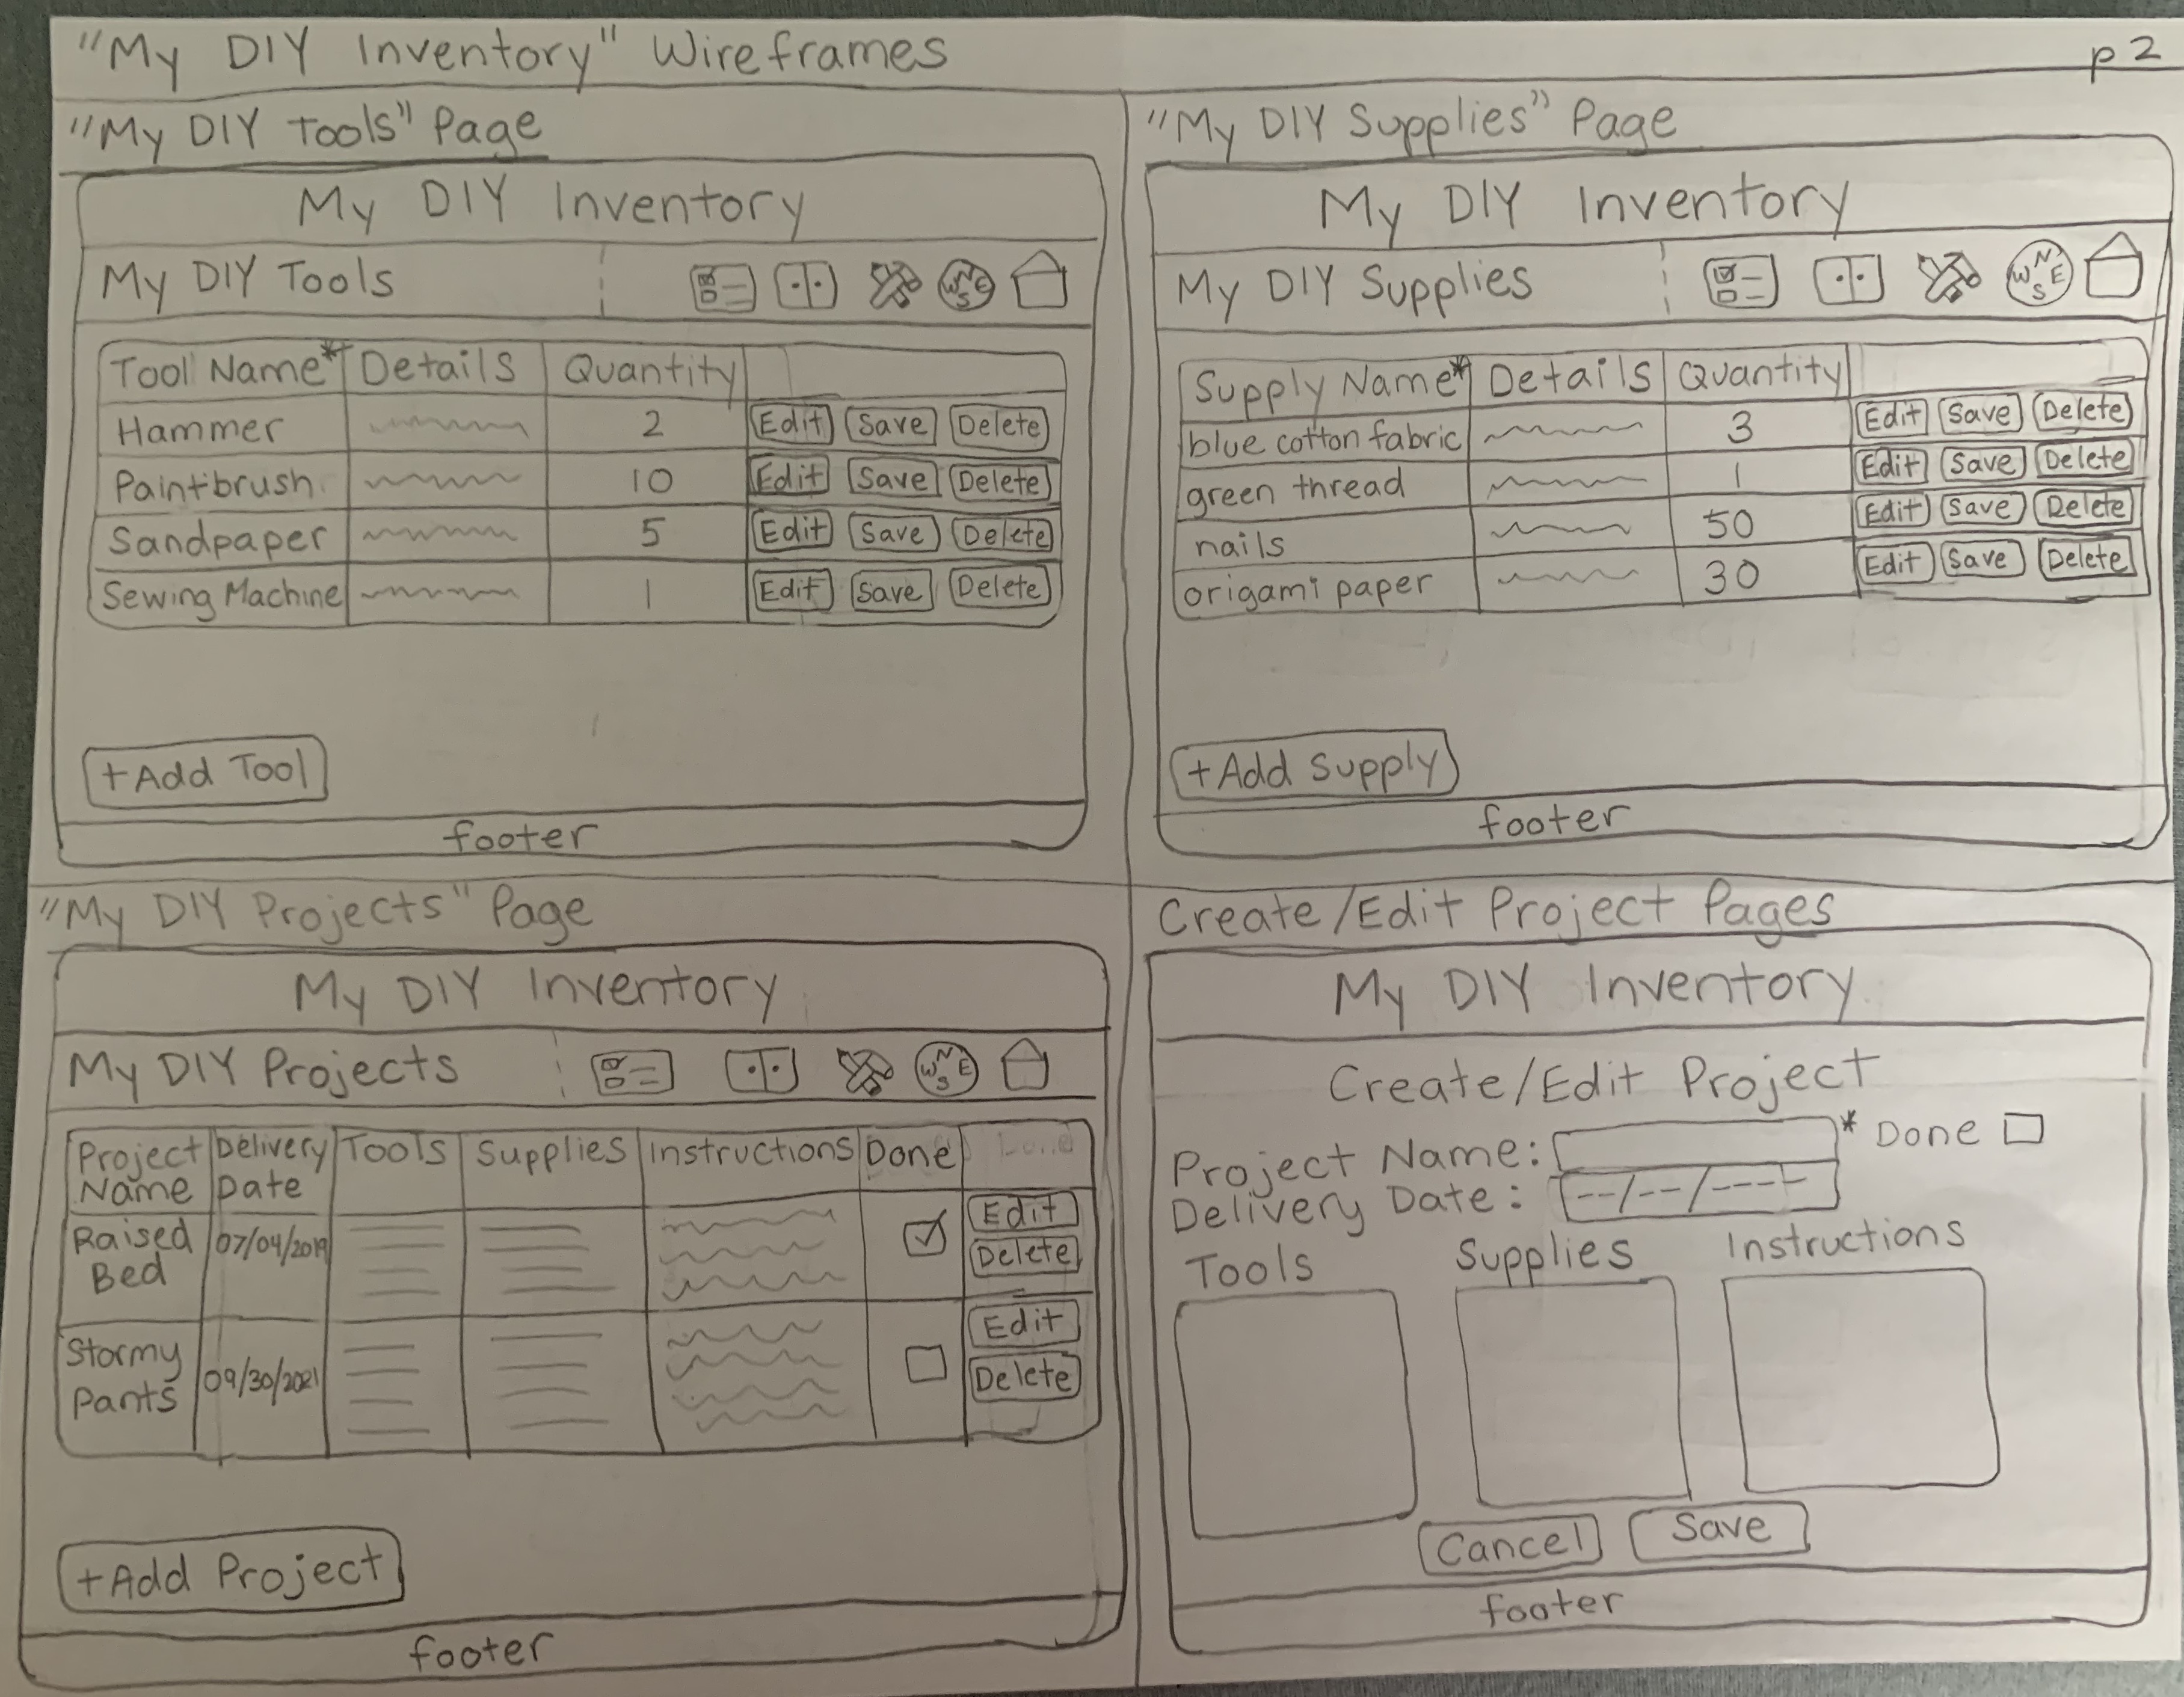 "My DIY Inventory" Wireframes
p 2
"My DIY Tools" Page
My DIY Inventory
My DIY Tools
W N E S
Tool Name* Details Quantity
Hammer 2 Edit Save Delete
Paintbrush 10 Edit Save Delete
Sandpaper 5 Edit Save Delete
Sewing Machine 1 Edit Save Delete
+Add Tool
footer
"My DIY Supplies" Page
My DIY Inventory
My DIY Supplies
W N E S
Supply Name* Details Quantity
blue cotton fabric 3 Edit Save Delete
green thread 1 Edit Save Delete
nails 50 Edit Save Delete
origami paper 30 Edit Save Delete
+Add Supply
footer
"My DIY Projects" Page
My DIY Inventory
My DIY Projects
W N E S
Project Name Delivery Date Tools Supplies Instructions Done
Raised Bed 07/04/2019 Edit Delete
Stormy Pants 09/30/2021 Edit Delete
+Add Project
footer
Create/Edit Project Pages
My DIY Inventory
Create/Edit Project
Project Name: * Done
Delivery Date: --/--/----
Tools Supplies Instructions
Cancel Save
footer